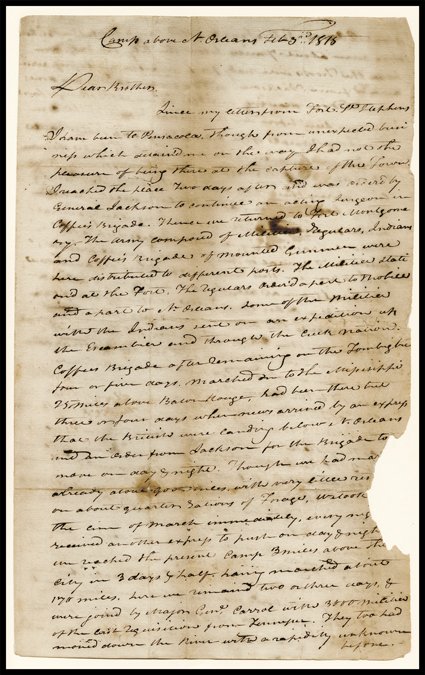 Camp above N Orleans Feb 3rd 1815
Dear Brother
Since my letter from Fort St Stephens
I have been to Pensacola, though from unexpected busi
ness which detained me on the way I had not the
pleasure of being there at the capture of the Town
I reached the place two days after and was ordered by
General Jackson to continue an acting Surgeon in
Coffee's Brigade. Thence we returned to Fort Montgome
ry. The army composed of Militia, Regulars, Indians
and Coffee's Brigade of Mounted Gunmen were
here distributed to different posts. The Militia
and at the Fort. The Regulars order'd a part to Mobile
and a part to N Orleans. Some of the Militia
with the Indians sent on an expedition up
the Escambia and through the Creek Nation.
Coffees Brigade after remaining on the Tombigbee
four or five days, marched on to the Mississippi
25 miles above Baton Rouge, had been there but
three or four days when news arrived by an express
that the British were landing below N Orleans
and an order from Jackson for the Brigade to
move on day & night. Though we had ma
already about miles, with very little res
on about quarter rations of forage, we took
the line of march immediately, every nig
received another express to push on day & night
we reached the present Camp 3 miles above the
City in 3 days & half, having marched about
170 miles. here we remained two or three days, &
were joined by Major Genl Carrol with 3000 Militia
of the last requisitions from Tennessee. They too had
moved down the River with a rapidity unknown
before.